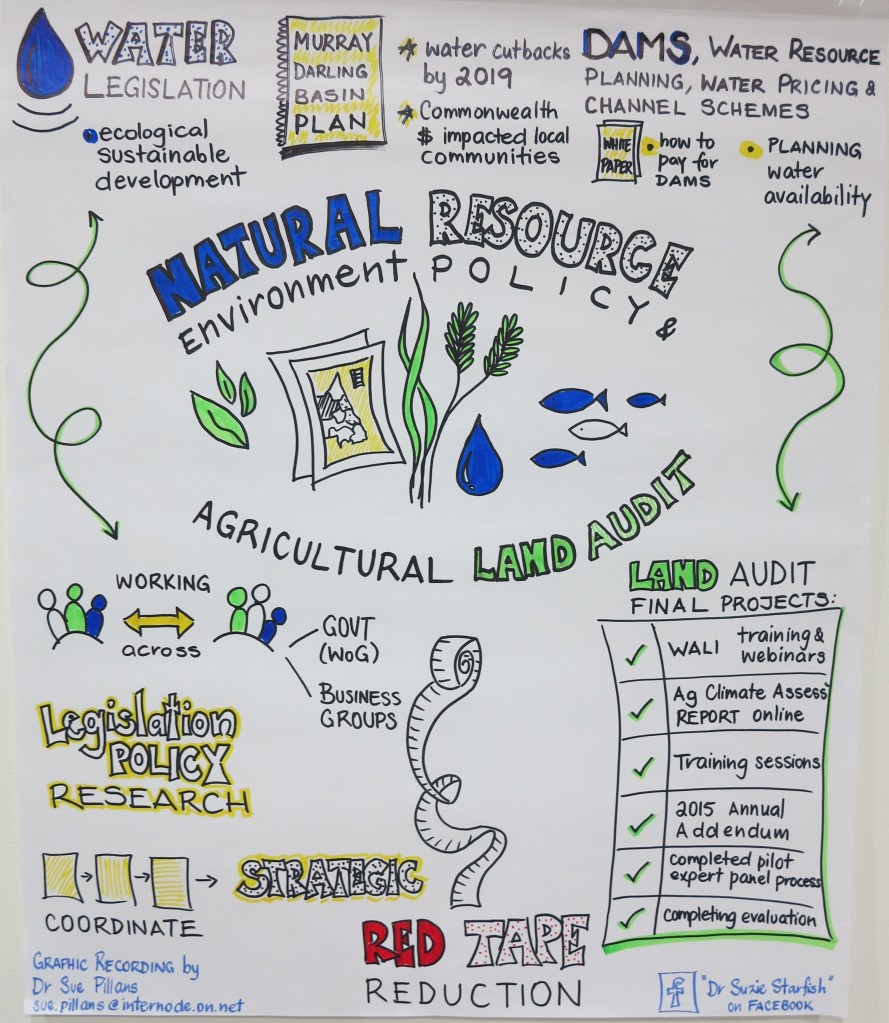 WATER
LEGISLATION
• ecological
sustainable
development
MURRAY
DARLING
BASIN
PLAN
* water cutbacks
by 2019
* Commonwealth
$ impacted local
communities
DAMS, WATER RESOURCE
PLANNING, WATER PRICING &
CHANNEL SCHEMES
WHITE
PAPER
• how to
pay for
DAMS
• PLANNING
water
availability
NATURAL RESOURCE
Environment POLICY &
AGRICULTURAL LAND AUDIT
WORKING
across
GOVT
(WoG)
BUSINESS
GROUPS
Legislation
POLICY
RESEARCH
COORDINATE
STRATEGIC
RED TAPE
REDUCTION
LAND AUDIT
FINAL PROJECTS:
✓ WALI training &
webinars
✓ Ag Climate Assess'
REPORT online
✓ Training sessions
✓ 2015 Annual
Addendum
✓ completed pilot
expert panel process
✓ completing evaluation
GRAPHIC RECORDING by
Dr Sue Pillans
sue.pillans@internode.on.net
f "Dr Suzie Starfish"
on FACEBOOK